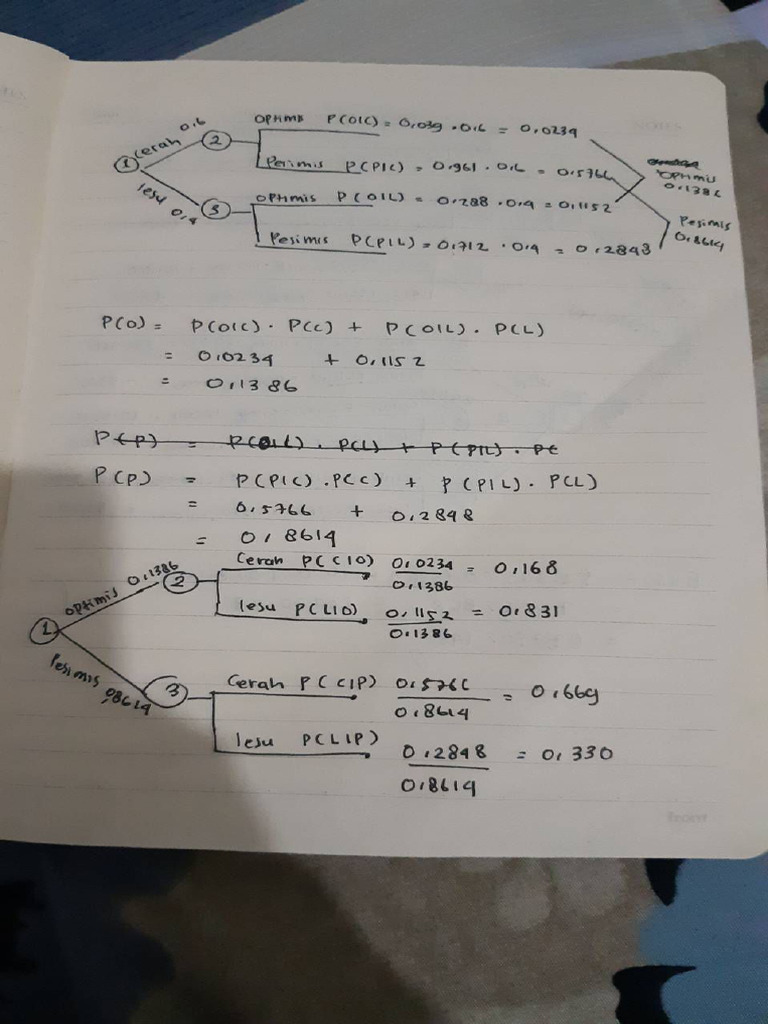 Optimis P(O|C) = 0,039 . 0,6 = 0,0234
cerah 0,6
1
2
Pesimis P(P|C) = 0,961 . 0,6 = 0,5766
Optimis
0,1386
lesu 0,4
3
Optimis P(O|L) = 0,288 . 0,4 = 0,1152
Pesimis P(P|L) = 0,712 . 0,4 = 0,2848
Pesimis
0,8614
P(O) = P(O|C) . P(C) + P(O|L) . P(L)
= 0,0234 + 0,1152
= 0,1386
P(P) = P(O|L) . P(L) + P(P|L) . P(
P(P) = P(P|C) . P(C) + P(P|L) . P(L)
= 0,5766 + 0,2848
= 0,8614
Optimis 0,1386
1
2
Cerah P(C|O) 0,0234 = 0,168
0,1386
lesu P(L|O) 0,1152 = 0,831
0,1386
Pesimis 0,8614
3
Cerah P(C|P) 0,5766 = 0,669
0,8614
lesu P(L|P) 0,2848 = 0,330
0,8614